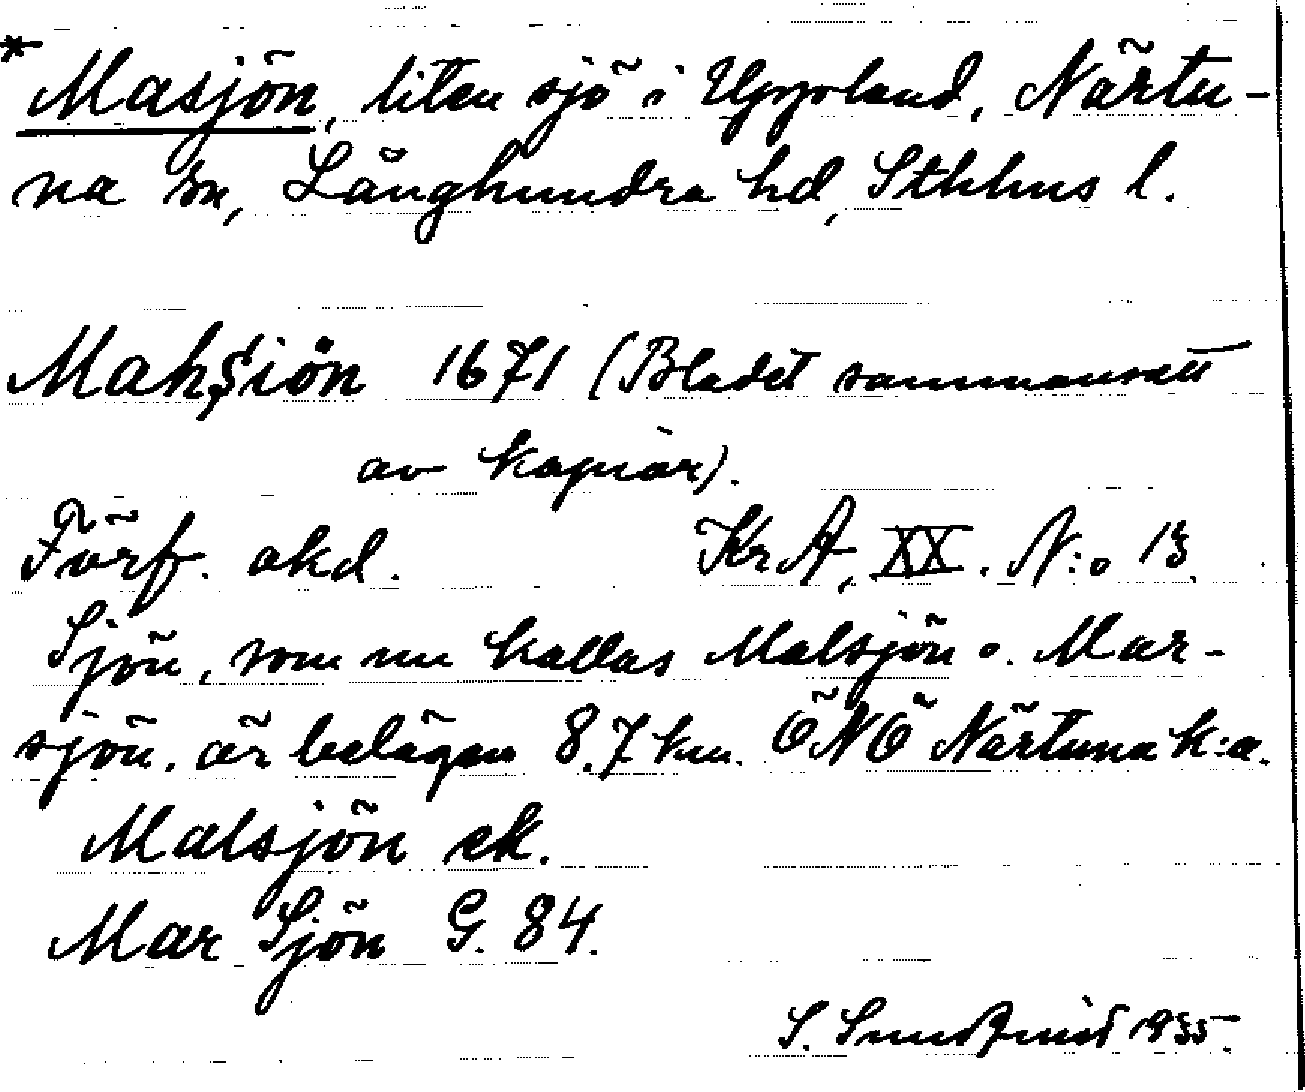 * Masjön, liten sjö i Uppland, Närtu-
na sn, Långhundra hd, Sthlms l.
Mahsiön 1671 (Bladet sammansatt
av kopior).
Förf. okd. KrA, XX. N:o 13.
Sjön, som nu kallas Malsjön o. Mar-
sjön, är belägen 8.7 km. ÖNÖ Närtuna k:a.
Malsjön ek.
Mar Sjön G. 84.
S. 1935.